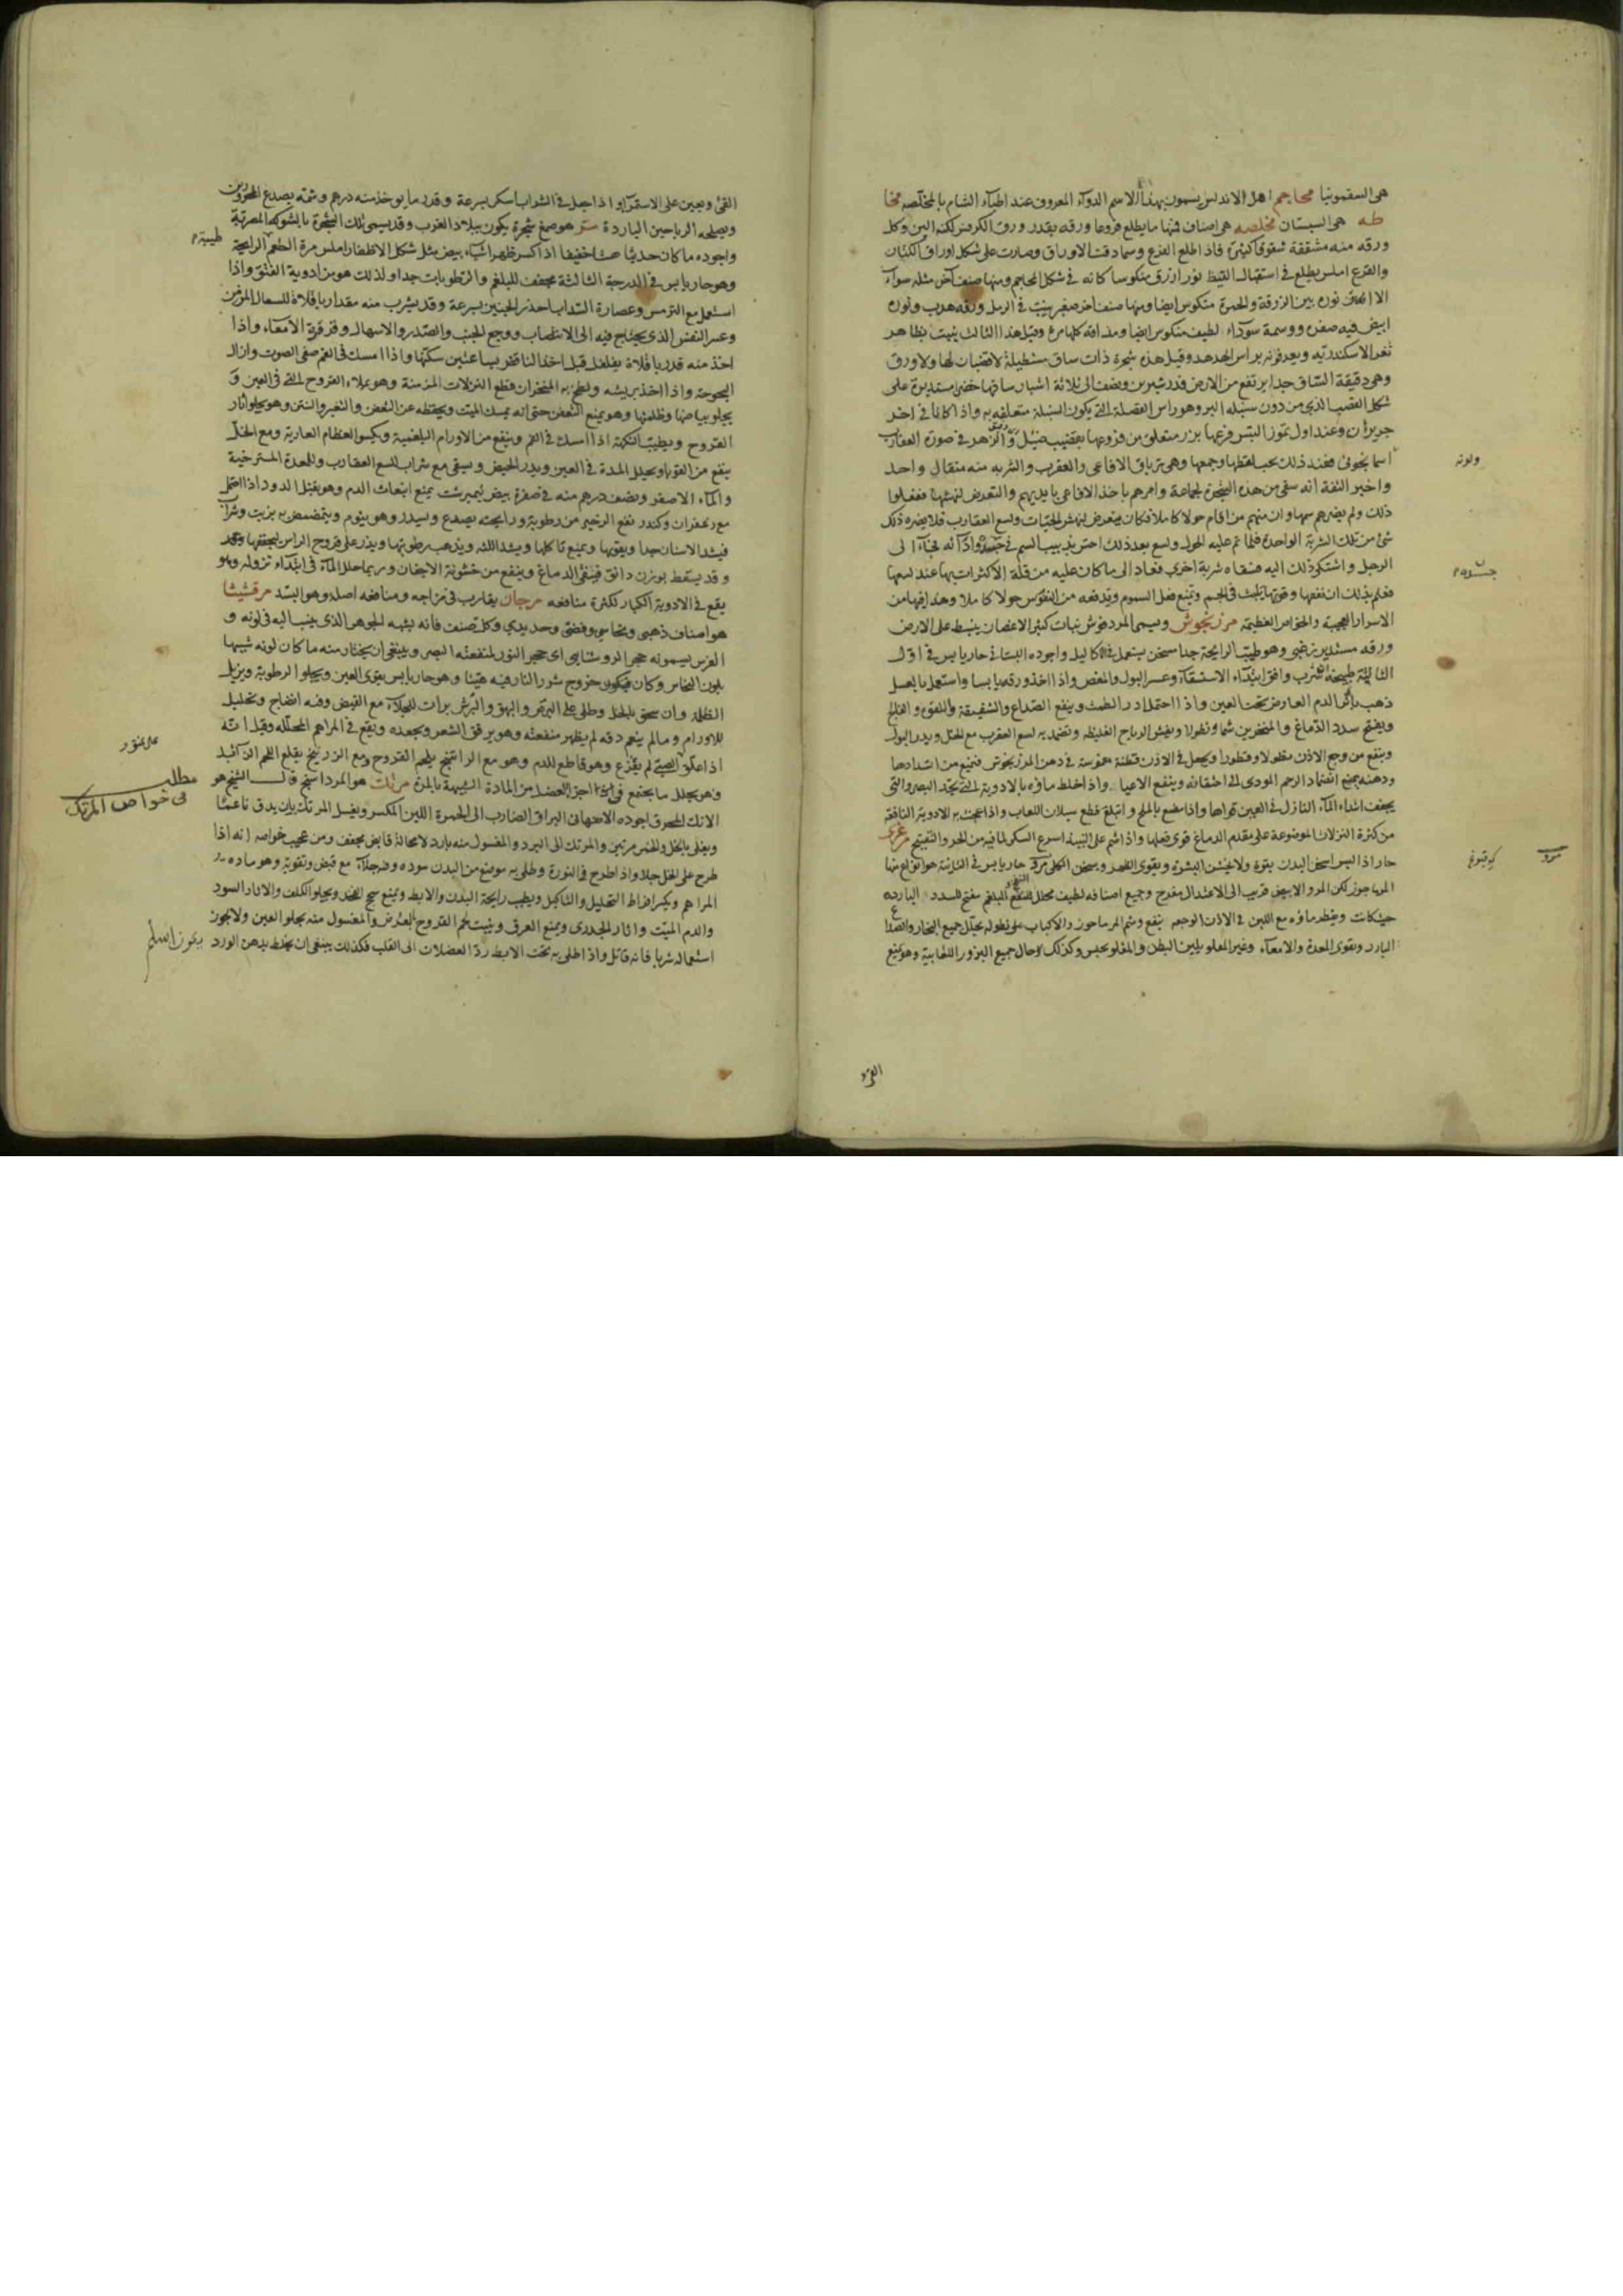 هى السقمونيا محاجم اهل الاندلس يسمون بهذا الاسم الدوآء المعروف عند اطبآء الشام بالمخلصه مخا
طه هى السبستان مخلصه هى اصناف فمنها ما يطلع فروعا ورقه بقدر ورق الكرفس لكنه الين وكل
ورقه منه مشققة شقوقا كثيرة فاذا طلع الفرع وسما دقت الاوراق وصارت على شكل اوراق الكتان
والفرع املس يطلع فى استقبال القيظ نور ازرق منكوسا كانه فى شكل المحاجم ومنها صنف آخر مثله سوآء
الا ان نوره بين الزرقة والحمرة منكوس ايضا ومنها صنف اخر صغير ينبت فى الرمل ورقه هدب ونوره
ابيض فيه صفرة ووسمة سوداء لطيف منكوس ايضا ومذاقه كلها مر وقيل هذا الثالث ينبت بظاهر
ثغر الاسكندرية ويعرفونه براس الهدهد وقيل هذه شجرة ذات ساق مستطيلة لا قضبان لها ولا ورق
وهى دقيقة الساق جدا يرتفع من الارض قدر شبرين ونصف الى ثلاثة اشبار ساقها خضراء مستديرة على
شكل القضيب الذى من دون سنبلة البر وهو راس القصبة التى يكون السنبلة متعلقه به واذا كانا فى اخر
حزيران وعند اول تموز اليبس فرعها بزر متعلق من فروعها بقضيب ضئيل والزهر فى صورة العقارب
اسمانجونى فعند ذلك يجب لقطها وجمعها وهى ترياق الافاعى والعقرب والشربه منه مثقال واحد
واخبر الثقة انه سقى من هذه الشجرة لجماعة وامرهم باخذ الافاعى بايديهم والتعرض لنهشها ففعلوا
ذلك ولم يضرهم سمها وان منهم من اقام حولا كاملا فكان يتعرض لنهش الحيات ولسع العقارب فلا يضره ذلك
شئ من تلك الشربة الواحدة فلما تم عليه الحول ولسع بعد ذلك احس بدبيب السم فى جسده واذآئه فجآء الى
الرجل واشتكى ذلك اليه فسقاه شربة اخرى فعاد الى ما كان عليه من قلة الاكتراث بها عند لسعها
فعلم بذلك ان نفعها وقوتها يلبث فى الجسم وتمنع فعل السموم وتدفعه من النفوس حولا كاملا وهذا فيها من
الاسرار العجيبة والخواص العظيمة مرزنجوش ويسمى المردقوش نبات كثير الاغصان ينبسط على الارض
ورقه مستدير زغبى وهو طيب الرايحة جدا مسخن يستعمل فى الاكاليل واجوده البستانى حار يابس فى اول
الثالثة طبيخه اذا شرب وافق ابتدآء الاستسقآء وعسر البول والمغص واذا اخذ ورقه يابسا واستعمل بالعسل
ذهب باثر الدم العارض تحت العين واذا احتمل ادر الطمث وينفع الصداع والشقيقة واللقوة والفالج
ويفتح سدد الدماغ والمنخرين شما ونطولا ويفش الرياح الغليظه وتضمد به لسع العقرب مع الخل ويدر البول
وينفع من وجع الاذن نطولا وقطورا ويجعل فى الاذن قطنة مغموسة فى دهن المرزنجوش فتمنع من انسدادها
ودهنه يمنع انضمام الرحم المودى الى اختناقه وينفع الاعيا واذا خلط ماؤه بالادوية التى تحد البصر والتى
يجفف ابتداء المآء النازل فى العين قواها واذا مضغ بالملح وابتلع قطع سيلان اللعاب واذا عجنت به الادوية النافعة
من كثرة النزلات الموضوعة على مقدم الدماغ قوى فعلها واذا شم على النبيذ اسرع السكر لما فيه من الحدر والتفتيح مرعزى
حار اذا لبس اسخن البدن بقوة ولا يخشن البشرة ويقوى الظهر ويسخن الكلى مرو حار يابس فى الثانية هو انواع منها
المرماحوز لكن المرو الابيض قريب الى الاعتدال مفرح وجميع اصنافه لطيف محلل للنفخ والبلغم مفتح للسدد الباردة
حيث كانت ويقطر ماؤه مع اللبن فى الاذن الوجعه ينفع وشم المرماحوز والاكباب على نطوله يحلل جميع البخار والصداع
البارد ويقوى المعدة والامعآء وغير المقلو يلين البطن والمقلو يحبس وكذلك حال جميع البزور اللعابية وهو يمنع
القئ
القئ ويعين على الاستمرآء واذا جعل فى الشراب اسكر بسرعة وقدر ما يوخذ منه درهم وشمه يصدع المحرورين
ويصلحه الرياحين الباردة مر هو صمغ شجرة يكون ببلاد الغرب وقد يسمى تلك الشجرة بالشوكه المصرية
واجوده ما كان حديثا هشا خفيفا اذا كسر ظهر اشياء بيض مثل شكل الاظفار املس مرة الطعم الرايحة
وهو حار يابس فى الدرجة الثالثة مجفف للبلغم والرطوبات جدا ولذلك هو من ادوية الفتق واذا
استعمل مع الترمس وعصارة السداب احدر الجنين بسرعة وقد يشرب منه مقدار باقلاة للسعال المزمن
وعسر النفس الذى يحتاج فيه الى الانتصاب ووجع الجنب والصدر والاسهال وقرقرة الامعآء واذا
اخذ منه قدر باقلاة بفلفل قبل اخذ النافض بساعتين سكنها واذا امسك فى الفم صفى الصوت وازال
البحوحة واذا اخذ بريشه ولطخ به المنخران قطع النزلات المزمنة وهو يملاء القروح التى فى العين و
يجلو بياضها وظلمتها وهو يمنع التعفن حتى انه يمسك الميت ويحفظه عن التعفن والتغير والنتن وهو يجلو اثار
القروح ويطيب النكهة اذا امسك فى الفم وينفع من الاورام البلغمية ويكسو العظام العارية ومع الخل
ينفع من القوبا ويحلل المدة فى العين ويدر الحيض ويسقى مع شراب للسع العقارب وللمعدة المسترخية
والمآء الاصفر ونصف درهم منه فى صفرة بيض نيمبرشت يمنع انبعاث الدم وهو يقتل الدود اذا احتمل
مع زعفران وكندر نفع الزحير من رطوبة ورايحته يصدع ويسدر وهو ينوم ويتمضمض به بزيت وشراب
فيشد الاسنان جدا ويقويها ويمنع تاكلها ويشد اللثه ويذهب رطوبتها ويذر على قروح الراس يجففها
وقد يسقط بوزن دانق فينقى الدماغ وينفع من خشونة الاجفان وربما حلل المآء فى ابتدآء نزوله وهو
يقع فى الادوية الكبار لكثرة منافعه مرجان يقارب فى مزاجه ومنافعه اصله وهو البسد مرقشيثا
هو اصناف ذهبى ونحاسى وفضى وحديدى وكل صنف فانه يشبه الجوهر الذى ينسب اليه فى لونه و
الفرس يسمونه حجر الروشنايى اى حجر النور لمنفعته البصر وينبغى ان يختار منه ما كان لونه شبيها
بلون النحاس وكان فيكون خروج شرر النار فيه هينا وهو حار يابس يقوى العين ويجلو الرطوبة ويزيل
الظلمة وان سحق بالخل وطلى على البرص والبهق والبرش برات للجلآء مع القبض وفيه انضاج وتحليل
للاورام وما لم ينعم دقه لم يظهر منفعته وهو يرقق الشعر ويجعده ويقع فى المراهم المحلله وقيل انه
اذا علق على الصبى لم يفزع وهو قاطع للدم وهو مع الراتينج يلحم القروح ومع الزرنيخ يقلع اللحم الزائد
وهو يحلل ما يجتمع فى اجزا العضل من المادة الشبيهة بالمدة مرتك هو المرداسنج قال الشيخ هو
الانك المحرق اجوده الاصبهانى البراق الضارب الى الحمرة اللين المكسر ويغسل المرتك بان يدق ناعما
ويغلى بالخل والخمر مرتين والمرتك الى البرد والمغسول منه بارد لا محالة قابض مجفف ومن عجيب خواصه انه اذا
طرح على الخل حلاه واذا طرح فى النورة وطلى به موضع من البدن سوده وفيه جلآء مع قبض وتقوية وهو ماده
المراهم ويكسر افراط التحليل والتاكيل ويطيب رايحة البدن والابط ويمنع سحج الفخذ ويجلو الكلف والاثار السود
والدم الميت واثار الجدرى ويمنع العرق وينبت لحم القروح والمغسول منه يجلو العين ولا يجوز
استعماله شربا فانه قاتل واذا طلى به تحت الابط رد العضلات الى القلب فكذلك ينبغى ان يخلط بدهن الورد
مطلب
فى خواص المرتك